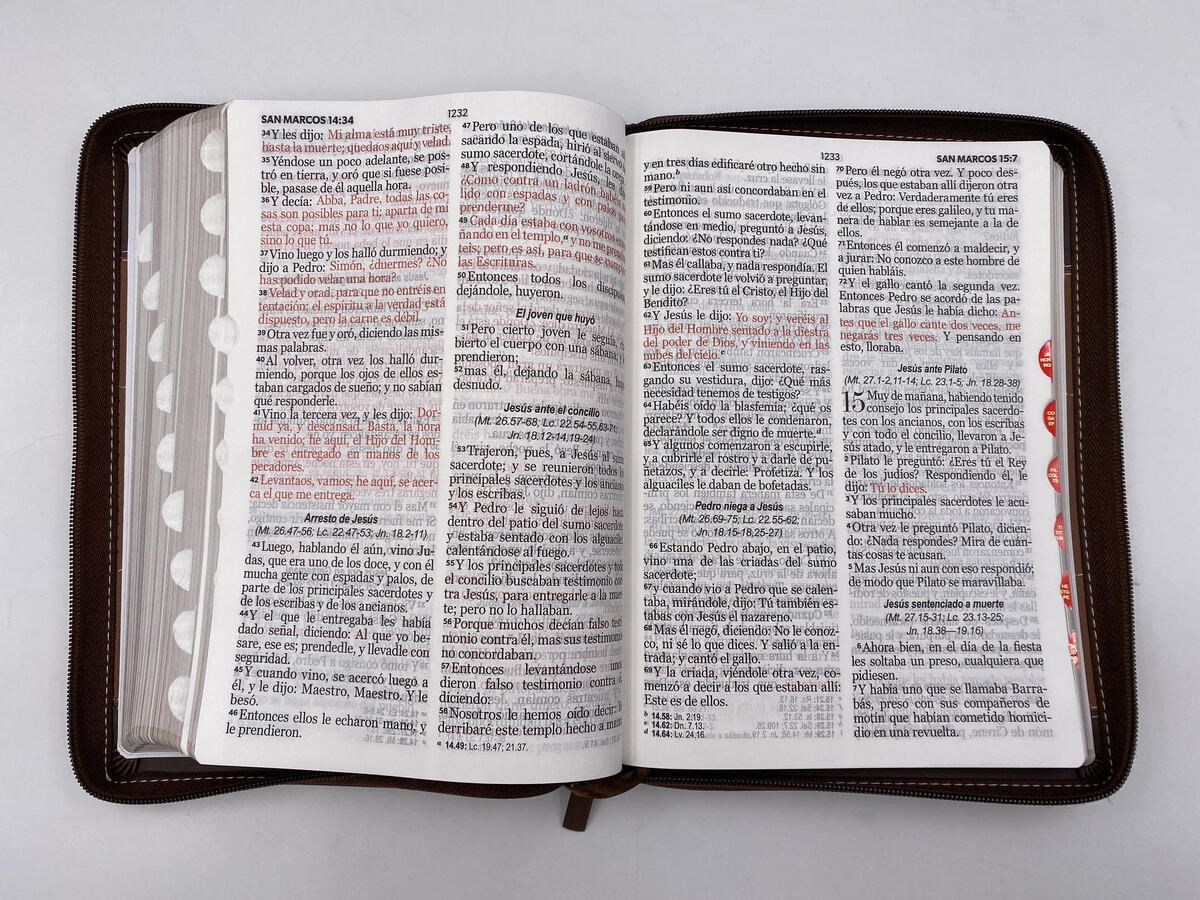 SAN MARCOS 14:34
1232
34 Y les dijo: Mi alma está muy triste,
hasta la muerte; quedaos aquí y velad.
35 Yéndose un poco adelante, se pos-
tró en tierra, y oró que si fuese posi-
ble, pasase de él aquella hora.
36 Y decía: Abba, Padre, todas las co-
sas son posibles para ti; aparta de mí
esta copa; mas no lo que yo quiero,
sino lo que tú.
37 Vino luego y los halló durmiendo; y
dijo a Pedro: Simón, ¿duermes? ¿No
has podido velar una hora?
38 Velad y orad, para que no entréis en
tentación; el espíritu a la verdad está
dispuesto, pero la carne es débil.
39 Otra vez fue y oró, diciendo las mis-
mas palabras.
40 Al volver, otra vez los halló dur-
miendo, porque los ojos de ellos es-
taban cargados de sueño; y no sabían
qué responderle.
41 Vino la tercera vez, y les dijo: Dor-
mid ya, y descansad. Basta, la hora
ha venido; he aquí, el Hijo del Hom-
bre es entregado en manos de los
pecadores.
42 Levantaos, vamos; he aquí, se acer-
ca el que me entrega.
Arresto de Jesús
(Mt. 26.47-56; Lc. 22.47-53; Jn. 18.2-11)
43 Luego, hablando él aún, vino Ju-
das, que era uno de los doce, y con él
mucha gente con espadas y palos, de
parte de los principales sacerdotes y
de los escribas y de los ancianos.
44 Y el que le entregaba les había
dado señal, diciendo: Al que yo be-
sare, ese es; prendedle, y llevadle con
seguridad.
45 Y cuando vino, se acercó luego a
él, y le dijo: Maestro, Maestro. Y le
besó.
46 Entonces ellos le echaron mano, y
le prendieron.
47 Pero uno de los que estaban
sacando la espada, hirió al siervo
sumo sacerdote, cortándole la
48 Y respondiendo Jesús, les
¿Como contra un ladrón
lido con espadas y con palos
prenderme?
49 Cada día estaba con vosotros
ñando en el templo,e y no me
teis; pero es así, para que se
las Escrituras.
50 Entonces todos los
dejándole, huyeron.
El joven que huyó
51 Pero cierto joven le seguía,
bierto el cuerpo con una sábana;
prendieron;
52 mas él, dejando la sábana,
desnudo.
Jesús ante el concilio
(Mt. 26.57-68; Lc. 22.54-55,63-71;
Jn. 18.12-14,19-24)
53 Trajeron, pues, a Jesús al
sacerdote; y se reunieron todos
principales sacerdotes y los
y los escribas.
54 Y Pedro le siguió de lejos
dentro del patio del sumo
y estaba sentado con los alguaciles,
calentándose al fuego.
55 Y los principales sacerdotes y
el concilio buscaban testimonio
tra Jesús, para entregarle a la
te; pero no lo hallaban.
56 Porque muchos decían falso
monio contra él, mas sus testimonios
no concordaban.
57 Entonces levantándose
dieron falso testimonio contra
diciendo:
58 Nosotros le hemos oído decir:
derribaré este templo hecho a mano,
e 14.49: Lc. 19.47; 21.37.
1233
SAN MARCOS 15:7
y en tres días edificaré otro hecho sin
mano.b
59 Pero ni aun así concordaban en el
testimonio.
60 Entonces el sumo sacerdote, levan-
tándose en medio, preguntó a Jesús,
diciendo: ¿No respondes nada? ¿Qué
testifican estos contra ti?
61 Mas él callaba, y nada respondía. El
sumo sacerdote le volvió a preguntar,
y le dijo: ¿Eres tú el Cristo, el Hijo del
Bendito?
62 Y Jesús le dijo: Yo soy; y veréis al
Hijo del Hombre sentado a la diestra
del poder de Dios, y viniendo en las
nubes del cielo.c
63 Entonces el sumo sacerdote, ras-
gando su vestidura, dijo: ¿Qué más
necesidad tenemos de testigos?
64 Habéis oído la blasfemia; ¿qué os
parece? Y todos ellos le condenaron,
declarándole ser digno de muerte.d
65 Y algunos comenzaron a escupirle,
y a cubrirle el rostro y a darle de pu-
ñetazos, y a decirle: Profetiza. Y los
alguaciles le daban de bofetadas.
Pedro niega a Jesús
(Mt. 26.69-75; Lc. 22.55-62;
Jn. 18.15-18,25-27)
66 Estando Pedro abajo, en el patio,
vino una de las criadas del sumo
sacerdote;
67 y cuando vio a Pedro que se calen-
taba, mirándole, dijo: Tú también es-
tabas con Jesús el nazareno.
68 Mas él negó, diciendo: No le conoz-
co, ni sé lo que dices. Y salió a la en-
trada; y cantó el gallo.
69 Y la criada, viéndole otra vez, co-
menzó a decir a los que estaban allí:
Este es de ellos.
b 14.58: Jn. 2.19.
c 14.62: Dn. 7.13.
d 14.64: Lv. 24.16.
70 Pero él negó otra vez. Y poco des-
pués, los que estaban allí dijeron otra
vez a Pedro: Verdaderamente tú eres
de ellos; porque eres galileo, y tu ma-
nera de hablar es semejante a la de
ellos.
71 Entonces él comenzó a maldecir, y
a jurar: No conozco a este hombre de
quien habláis.
72 Y el gallo cantó la segunda vez.
Entonces Pedro se acordó de las pa-
labras que Jesús le había dicho: An-
tes que el gallo cante dos veces, me
negarás tres veces. Y pensando en
esto, lloraba.
Jesús ante Pilato
(Mt. 27.1-2,11-14; Lc. 23.1-5; Jn. 18.28-38)
15 Muy de mañana, habiendo tenido
consejo los principales sacerdo-
tes con los ancianos, con los escribas
y con todo el concilio, llevaron a Je-
sús atado, y le entregaron a Pilato.
2 Pilato le preguntó: ¿Eres tú el Rey
de los judíos? Respondiendo él, le
dijo: Tú lo dices.
3 Y los principales sacerdotes le acu-
saban mucho.
4 Otra vez le preguntó Pilato, dicien-
do: ¿Nada respondes? Mira de cuán-
tas cosas te acusan.
5 Mas Jesús ni aun con eso respondió;
de modo que Pilato se maravillaba.
Jesús sentenciado a muerte
(Mt. 27.15-31; Lc. 23.13-25;
Jn. 18.38—19.16)
6 Ahora bien, en el día de la fiesta
les soltaba un preso, cualquiera que
pidiesen.
7 Y había uno que se llamaba Barra-
bás, preso con sus compañeros de
motín que habían cometido homici-
dio en una revuelta.